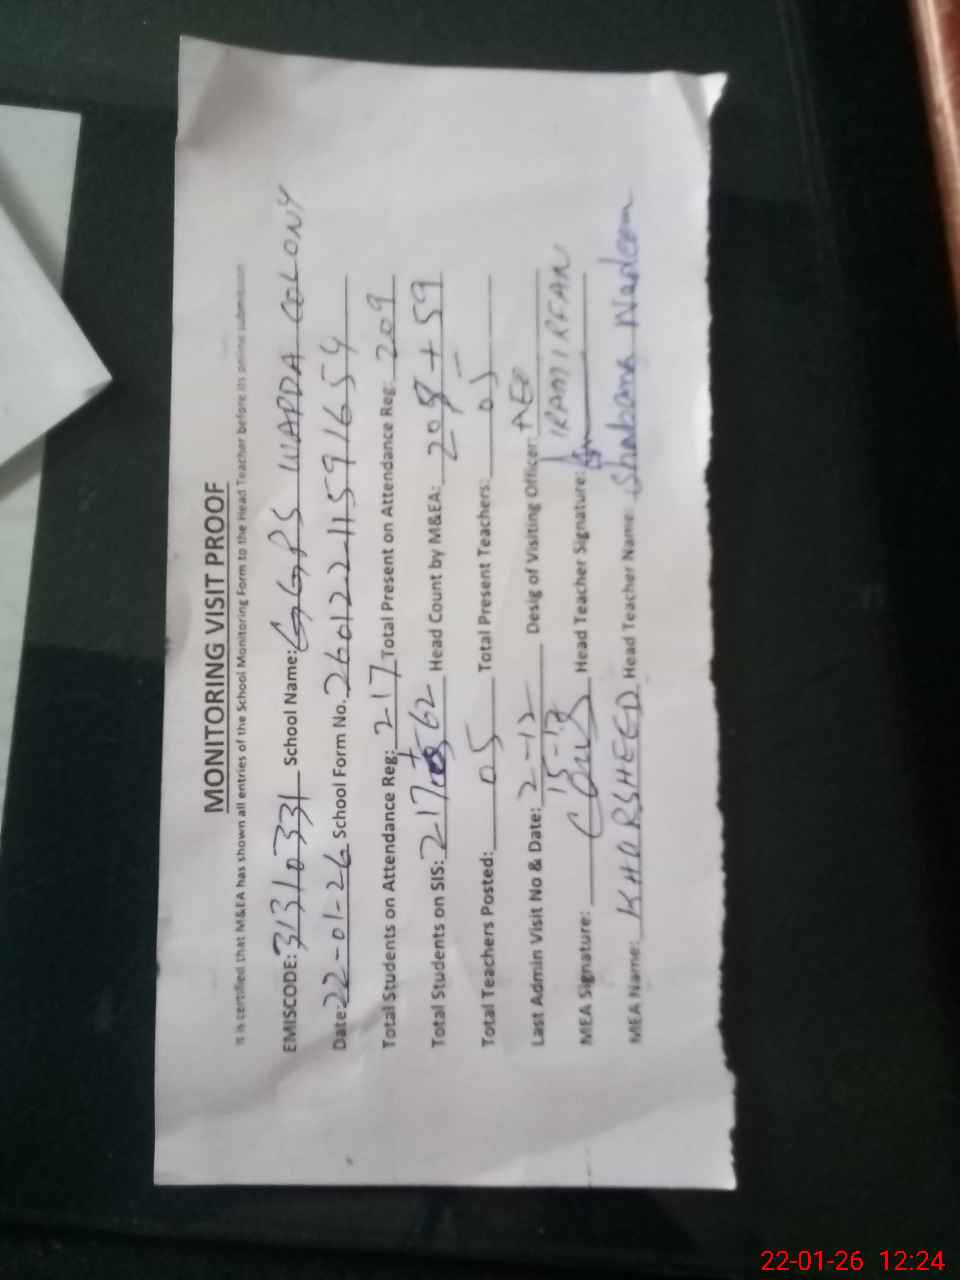 MONITORING VISIT PROOF
It is certified that M&EA has shown all entries of the School Monitoring Form to the Head Teacher before its online submission
EMISCODE: 31310331 School Name: GGPS WAPDA COLONY
Date: 22-01-26 School Form No. 260122-11591654
Total Students on Attendance Reg: 217 Total Present on Attendance Reg: 209
Total Students on SIS: 217+62 Head Count by M&EA: 208+59
Total Teachers Posted: 05 Total Present Teachers: 05
Last Admin Visit No & Date: 2-12 15-12 Desig of Visiting Officer: AEO IRAM IRFAN
MEA Signature: Head Teacher Signature:
MEA Name: KHURSHEED Head Teacher Name: Shabana Nadeem
22-01-26 12:24